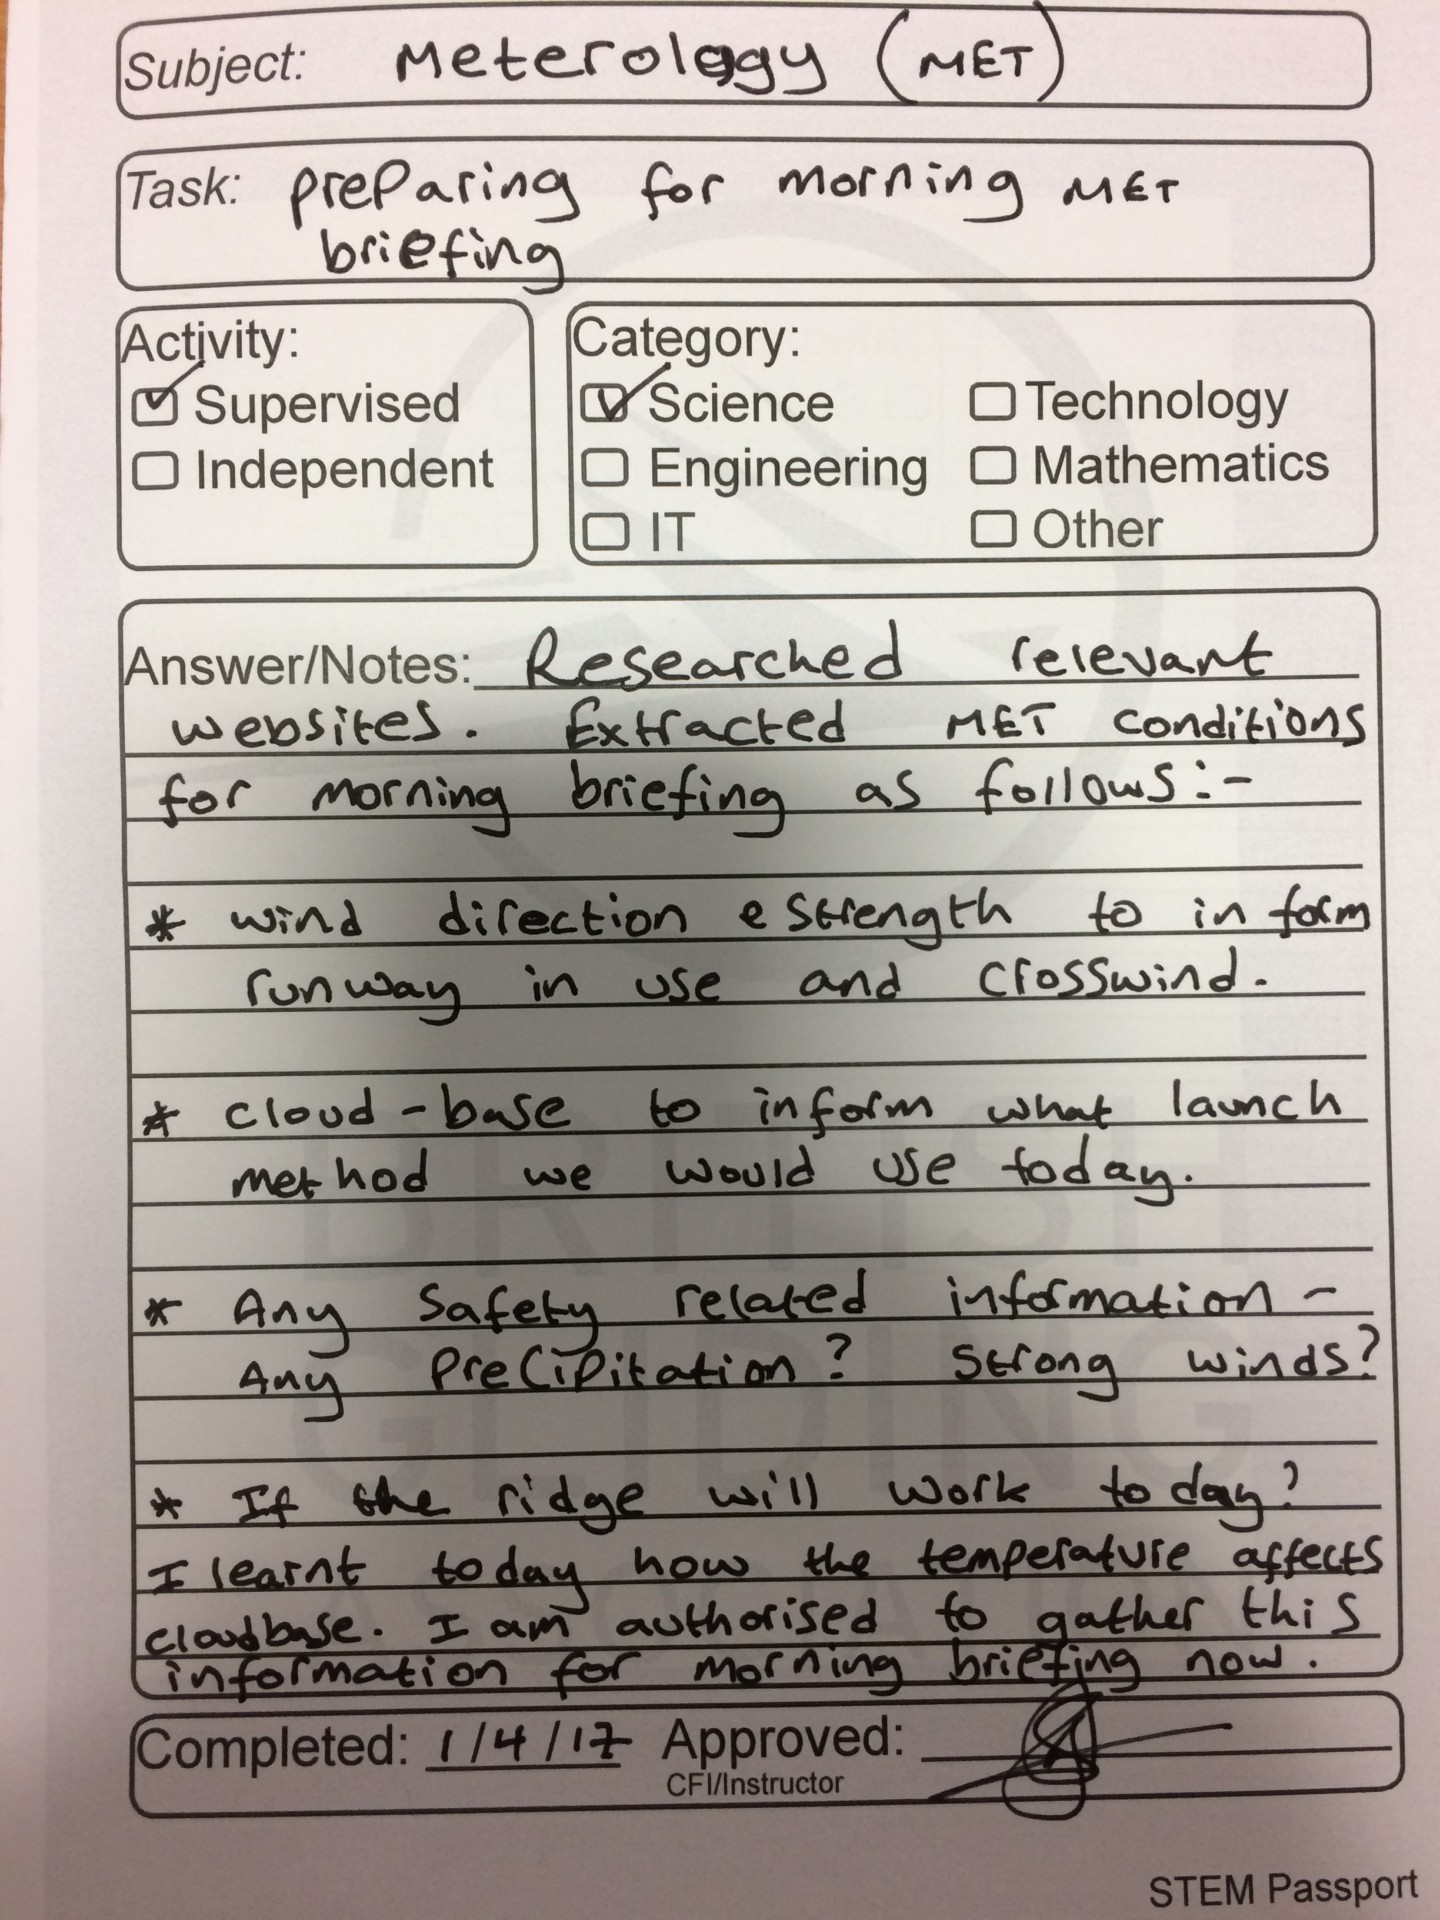 Subject: Meterology (MET)
Task: preparing for morning MET
briefing
Activity:
Supervised
Independent
Category:
Science
Technology
Engineering
Mathematics
IT
Other
Answer/Notes: Researched relevant
websites. Extracted MET conditions
for morning briefing as follows:-
* wind direction & strength to inform
runway in use and crosswind.
* cloud-base to inform what launch
method we would use today.
* Any safety related information -
Any precipitation? strong winds?
* If the ridge will work today?
I learnt today how the temperature affects
cloudbase. I am authorised to gather this
information for morning briefing now.
Completed: 1/4/17 Approved:
CFI/Instructor
BRITISH
GLIDING
ASSOCIATION
STEM Passport